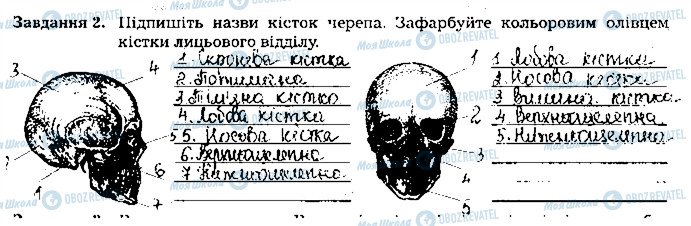 Завдання 2. Підпишіть назви кісток черепа. Зафарбуйте кольоровим олівцем
кістки лицьового відділу.
1. Скронева кістка
2. Потилична
3. Тім'яна кістка
4. Лобова кістка
5. Носова кістка
6. Верхньощелепна
7. Нижньощелепна
3 4 2 1 5 6 7
1. Лобова кістка
2. Носова кістка
3 Вилична кістка
4. Верхньощелепна
5. Нижньощелепна
1 2 3 4 5
Моя Школа OBOZREVATEL